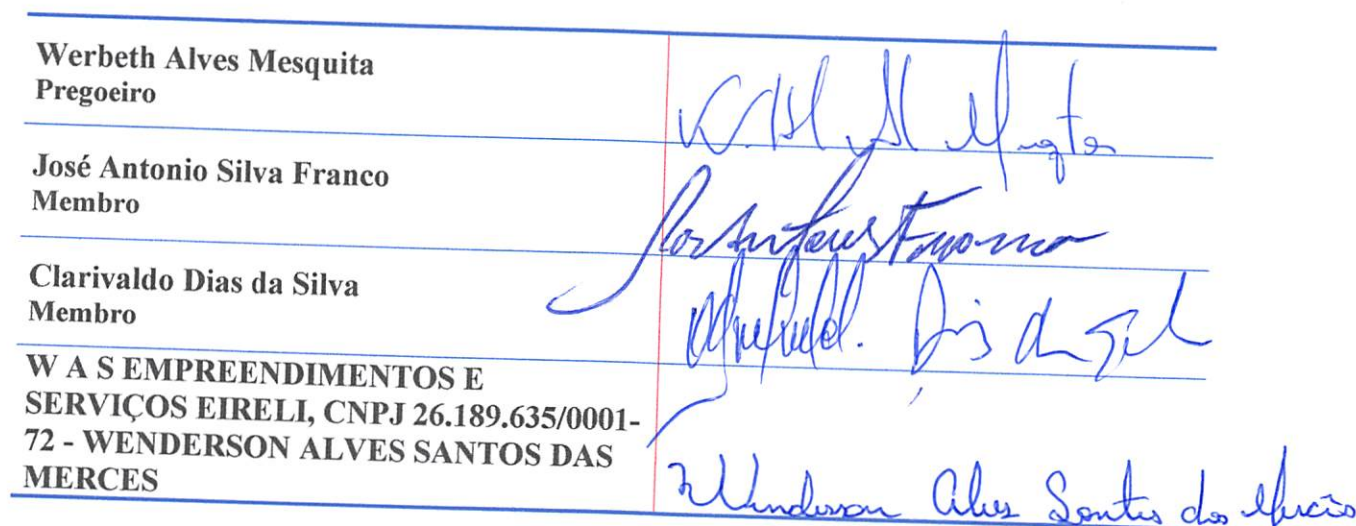 Werbeth Alves Mesquita
Pregoeiro
José Antonio Silva Franco
Membro
Clarivaldo Dias da Silva
Membro
W A S EMPREENDIMENTOS E
SERVIÇOS EIRELI, CNPJ 26.189.635/0001-
72 - WENDERSON ALVES SANTOS DAS
MERCES
Wenderson Alves Santos das